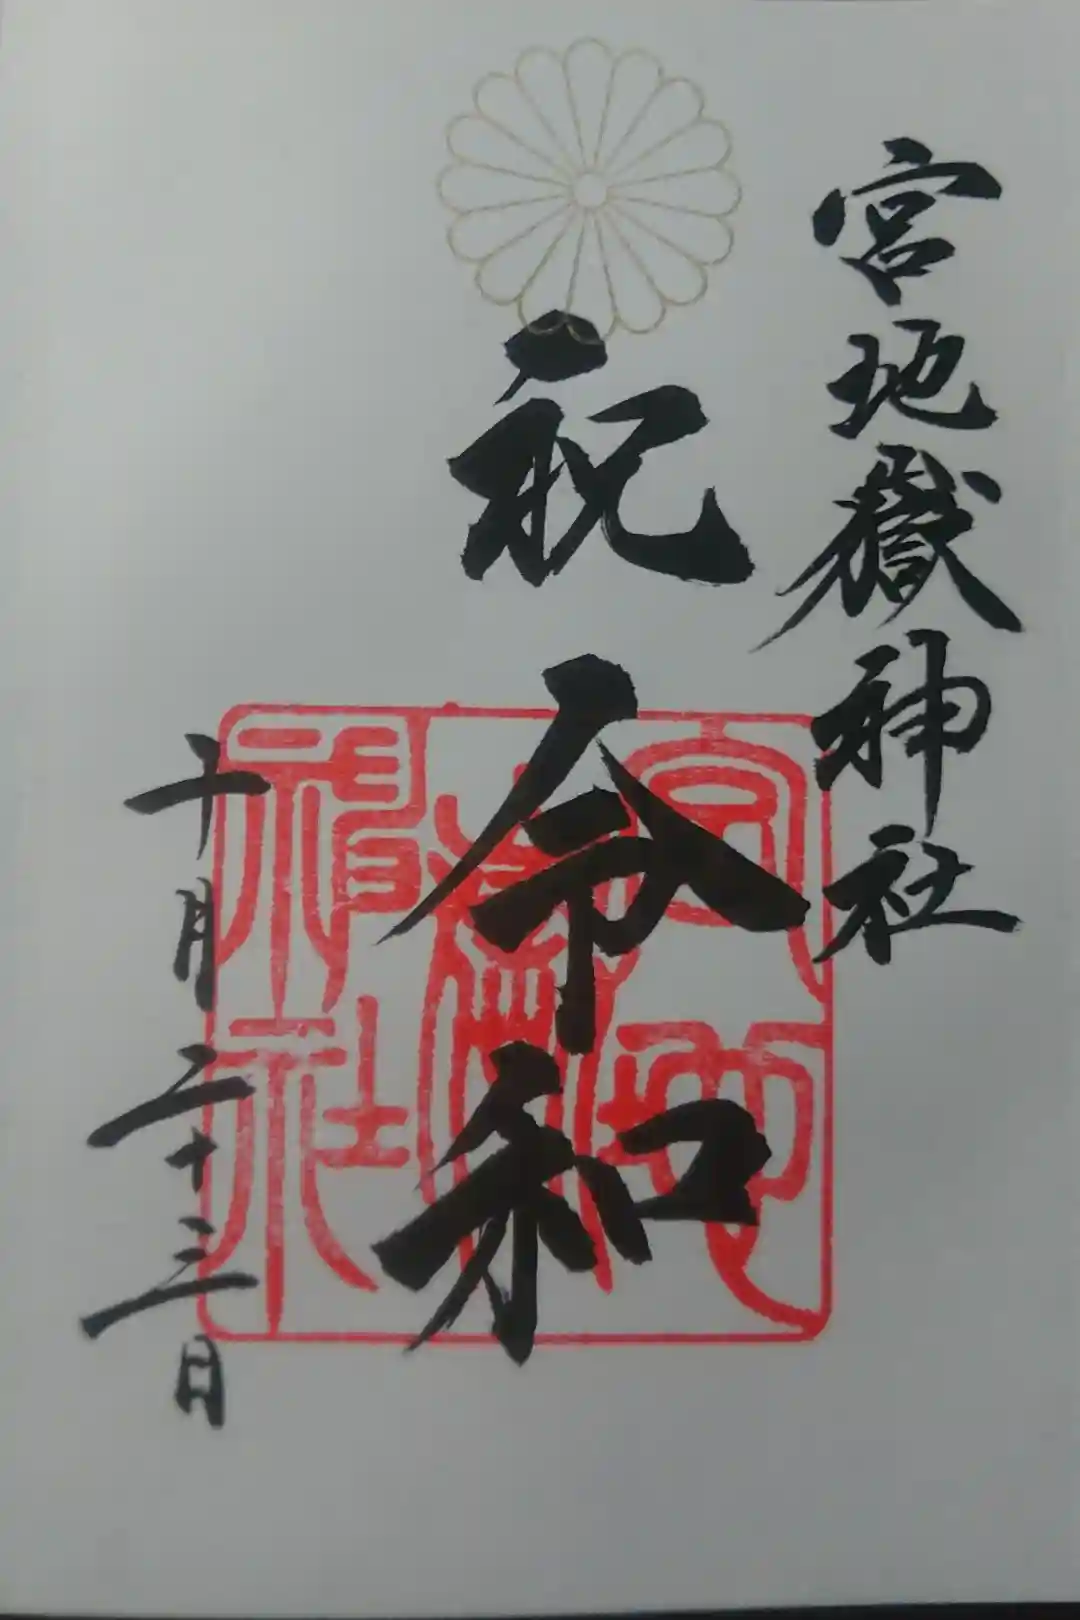 宮地嶽神社
祝 令和
宮地
嶽
神社
十月二十三日